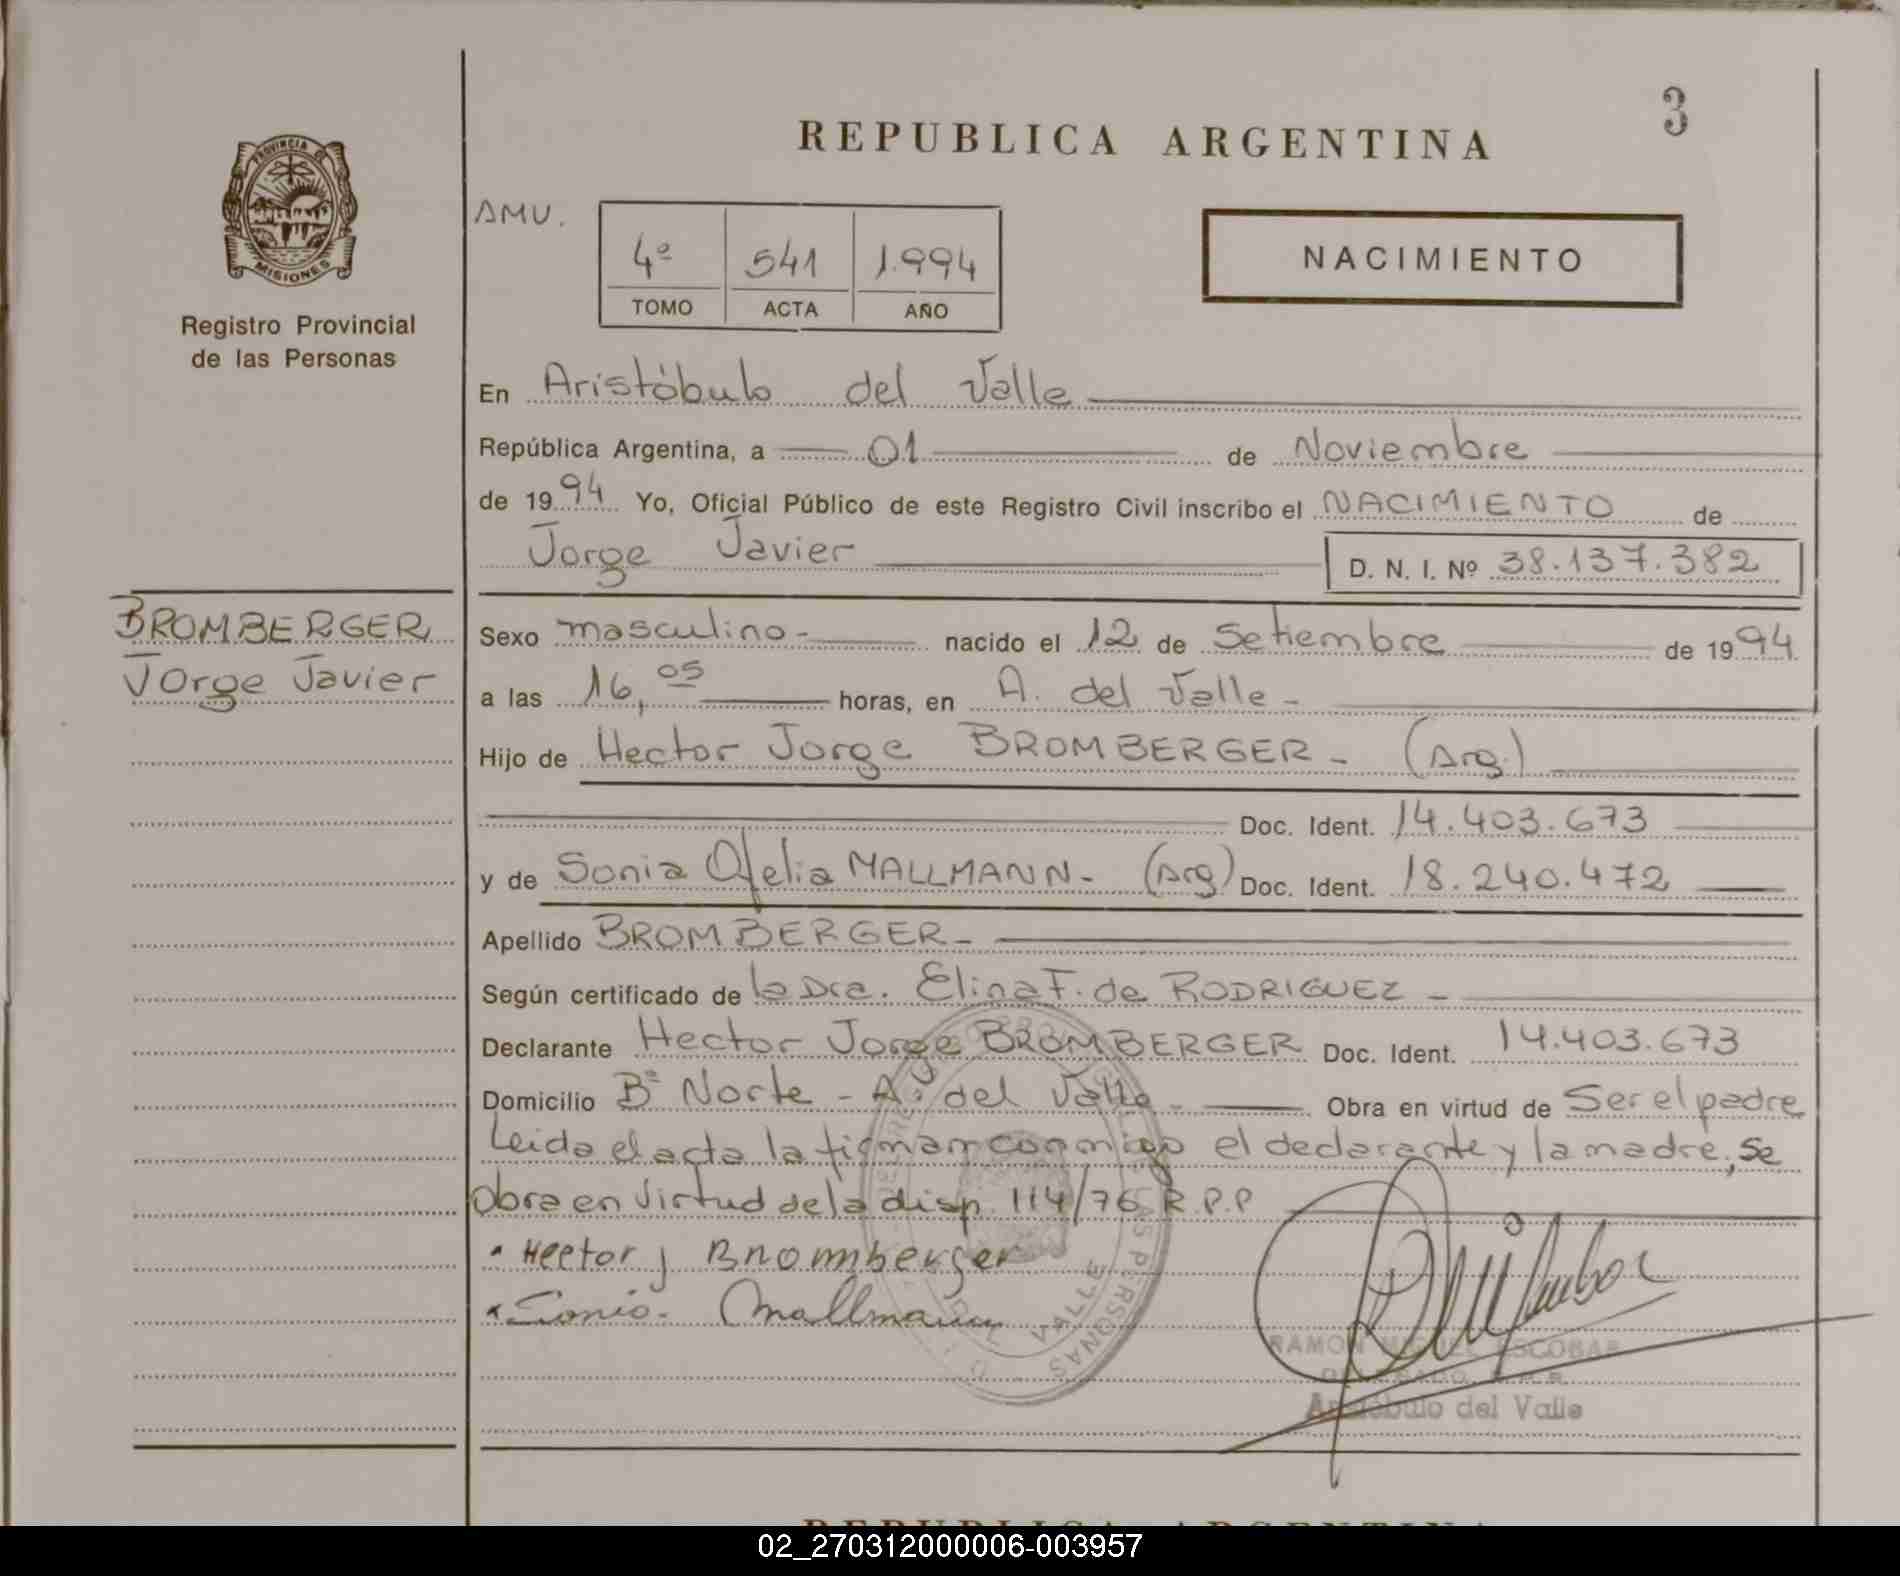 3
REPUBLICA ARGENTINA
PROVINCIA DE
MISIONES
Registro Provincial
de las Personas
AMU.
4º 541 1.994
TOMO ACTA AÑO
NACIMIENTO
En Aristóbulo del Valle
República Argentina, a 01 de Noviembre
de 1994 Yo, Oficial Público de este Registro Civil inscribo el NACIMIENTO de
Jorge Javier D. N. I. Nº 38.137.382
BROMBERGER
Jorge Javier
Sexo masculino- nacido el 12 de Setiembre de 1994
a las 16,05 horas, en A. del Valle -
Hijo de Hector Jorge BROMBERGER - (Arg.)
Doc. Ident. 14.403.673
y de Sonia Ofelia MALLMANN- (Arg) Doc. Ident. 18.240.472
Apellido BROMBERGER-
Según certificado de la Dra. Elina F. de RODRIGUEZ -
Declarante Hector Jorge BROMBERGER Doc. Ident. 14.403.673
Domicilio Bº Norte - A. del Valle - Obra en virtud de Ser el padre
Leida el acta la firman conmigo el declarante y la madre, se
obra en virtud de la disp. 114/76 R.P.P
Hector J Bromberger
Sonia Mallmann
RAMON MIGUEL ESCOBAR
DELEGADO
Aristóbulo del Valle
LAS PERSONAS
VALLE
REPUBLICA ARGENTINA
02_270312000006-003957